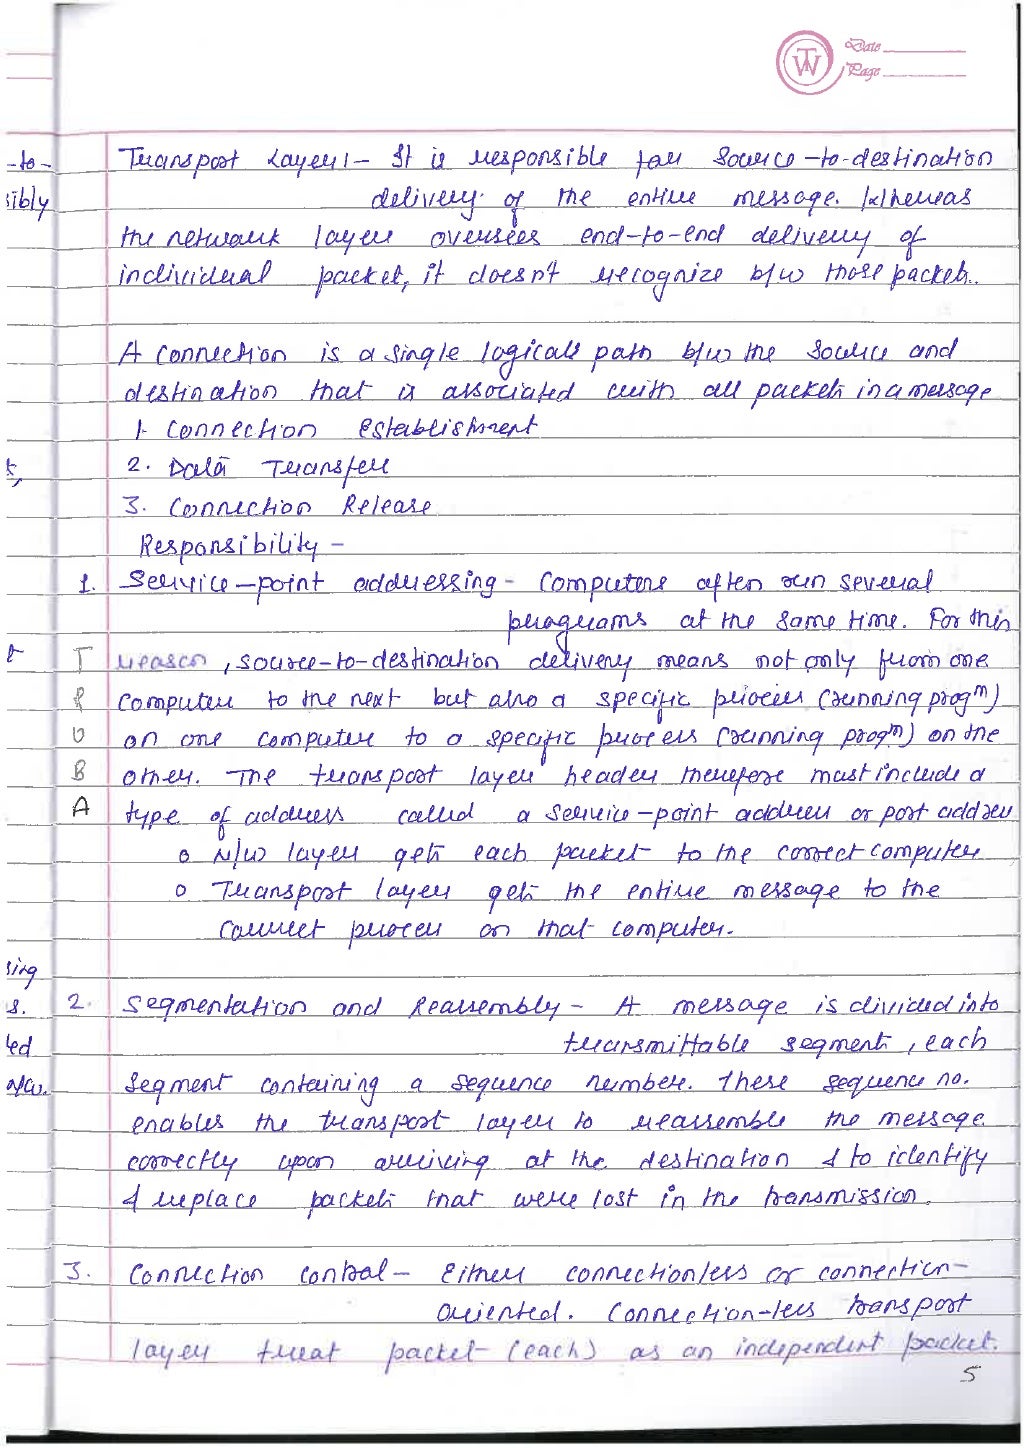 TW
Date
Page
-to-
sibly
Transport Layer:- It is responsible for source-to-destination
delivery of the entire message. Whereas
the network layer oversees end-to-end delivery of
individual packet, it doesn't recognize b/w those packets.
A connection is a single logical path b/w the source and
destination that is associated with all packets in a message
1. Connection Establishment
2. Data Transfer
3. Connection Release
Responsibility -
1. Service-point addressing - Computers often run several
programs at the same time. For this
T reason, source-to-destination delivery means not only from one
R computer to the next but also a specific process (running progm)
U on one computer to a specific process (running progm) on the
B other. The transport layer header therefore must include a
A type of address called a service-point address or port address
o N/W layer gets each packet to the correct computer
o Transport layer gets the entire message to the
correct process on that computer.
sing
s. 2. Segmentation and Reassembly - A message is divided into
ted transmittable segments, each
segment containing a sequence number. These sequence no.
enables the transport layer to reassemble the message
correctly upon arriving at the destination & to identify
& replace packets that were lost in the transmission.
3. Connection control - Either connectionless or connection-
oriented. Connection-less transport
layer treat packet (each) as an independent packet.
5